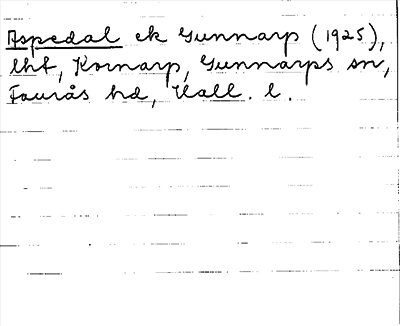 Aspedal ek Gunnarp (1925),
lht, Kornarp, Gunnarps sn,
Faurås hd, Hall. l.